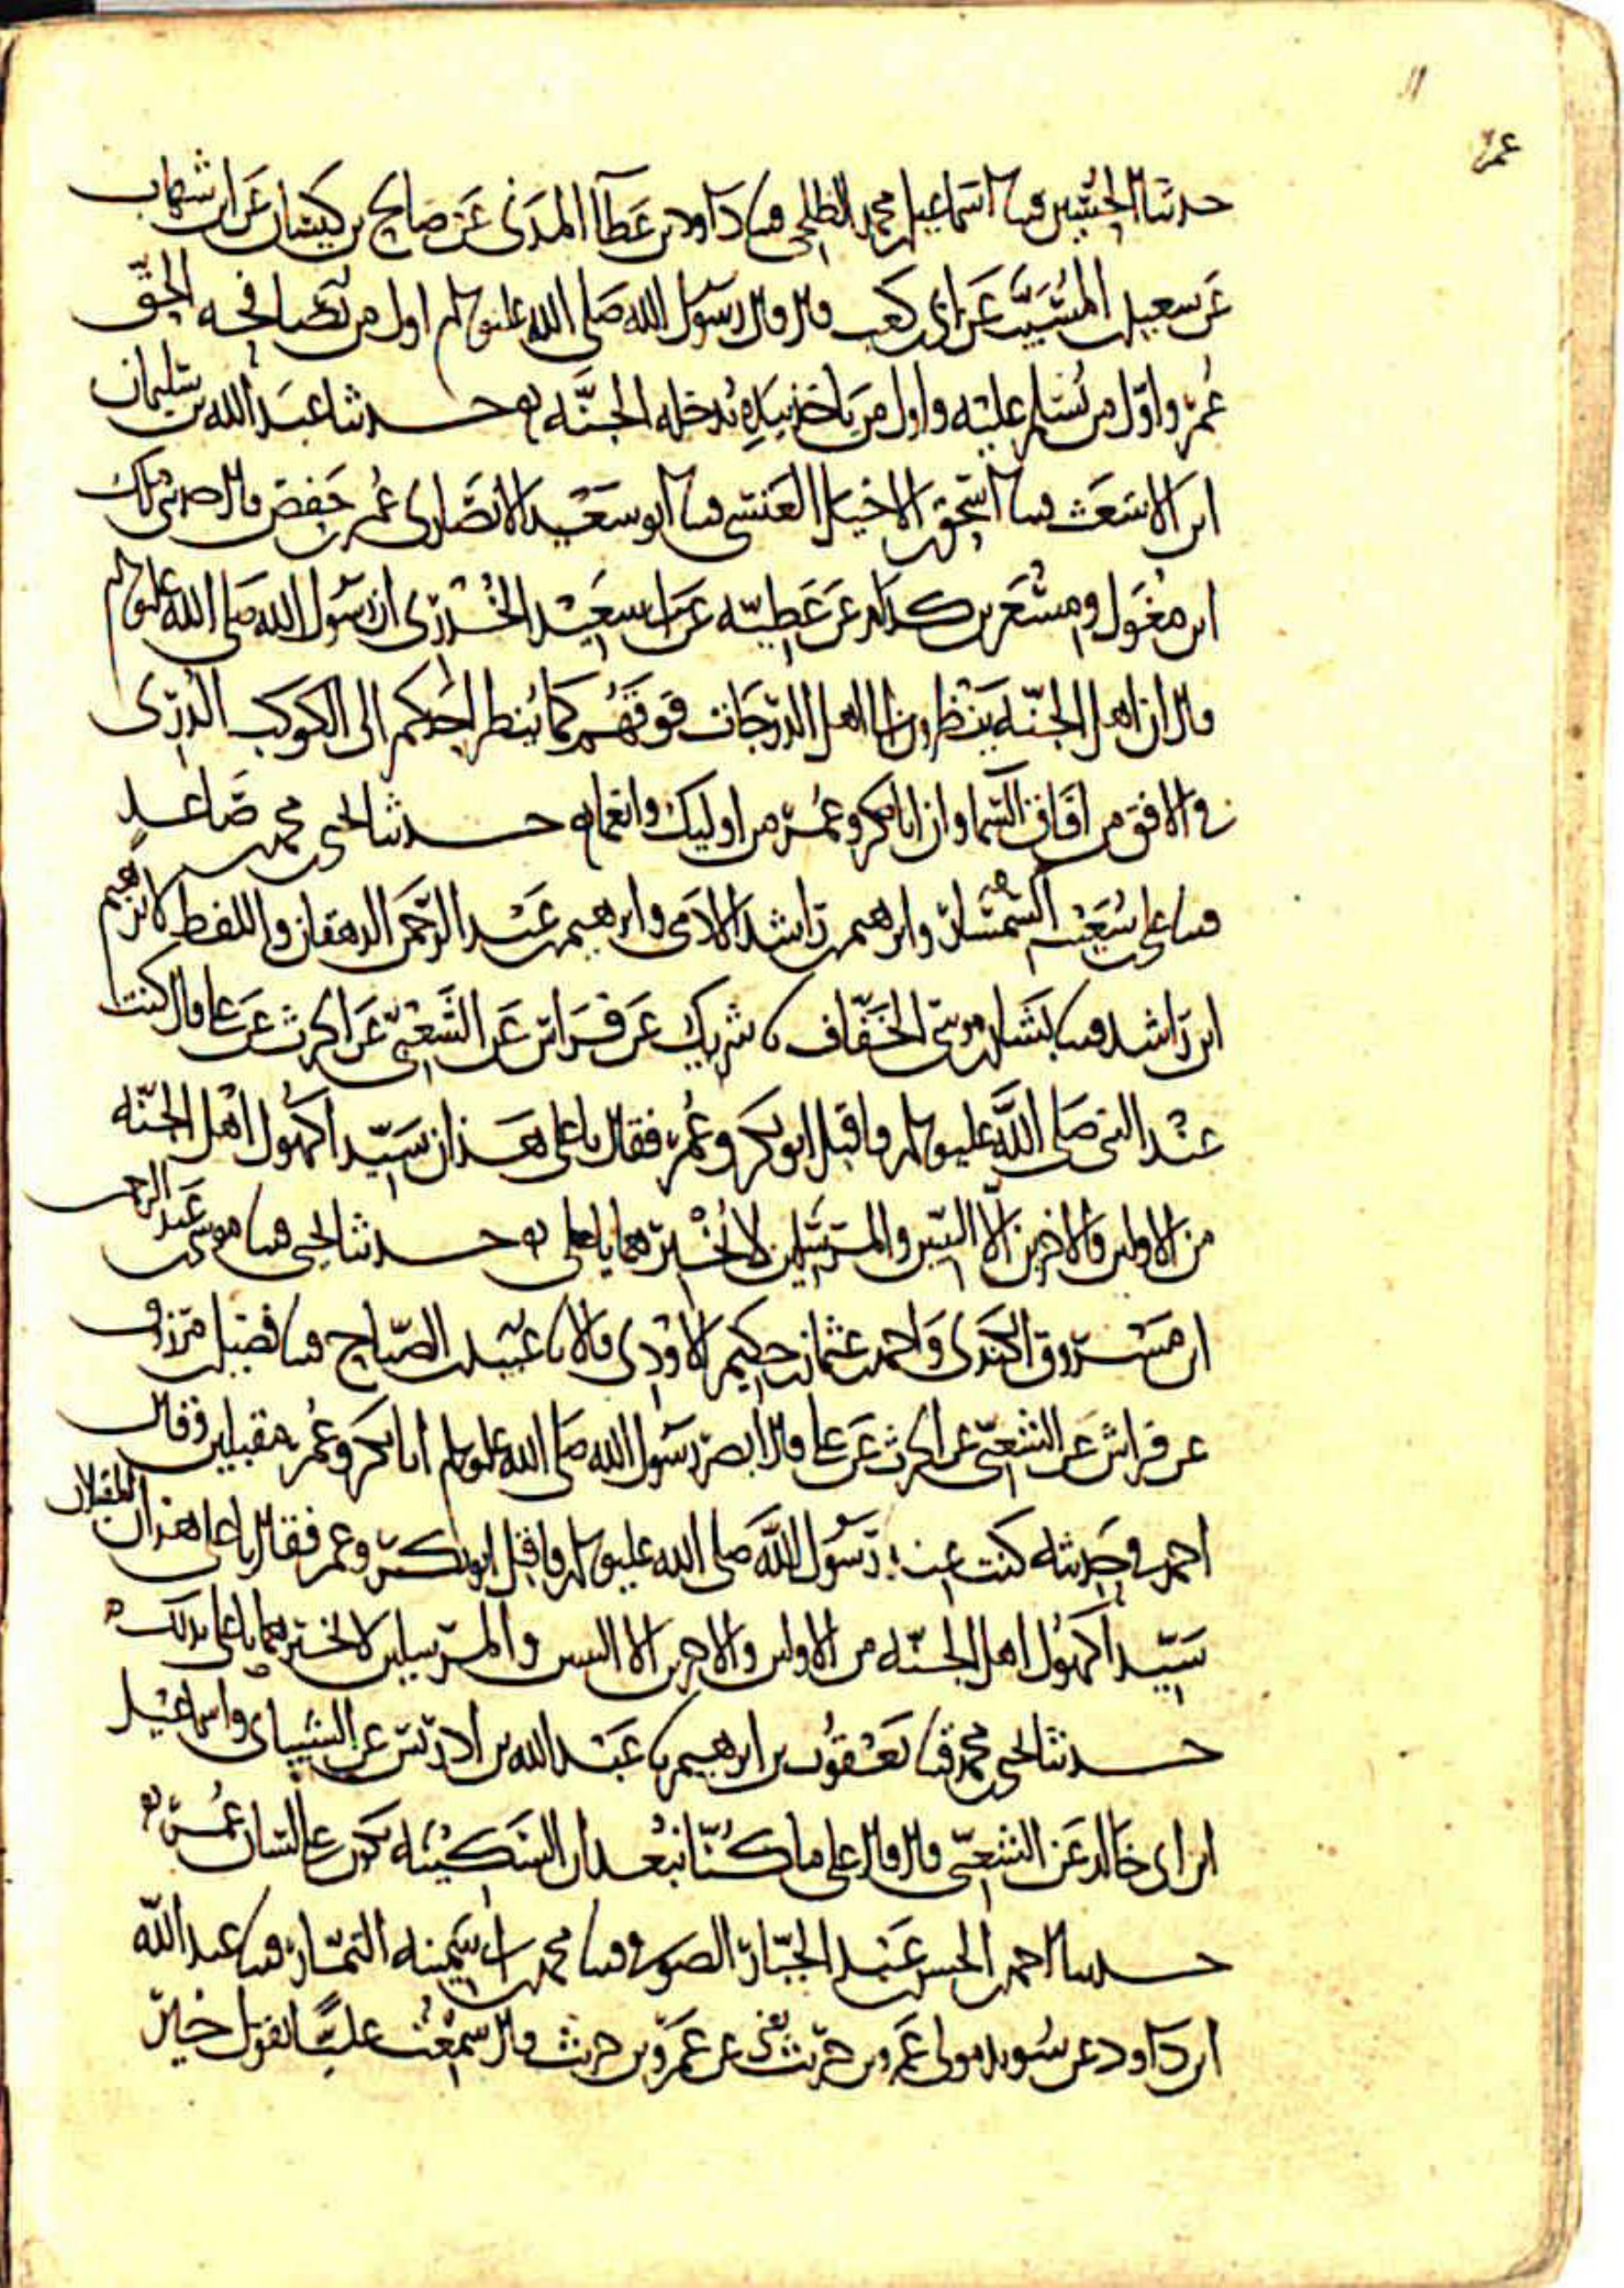 عمر
حدثنا الحسين قثنا اسماعيل بن محمد الطلحي قثنا داود بن عطآ المدني عن صالح بن كيسان عن ابن شهاب
عن سعيد بن المسيب عن ابي بن كعب قال قال رسول الله صلى الله عليه وسلم اول من يصافحه الحق
عمر واول من يسلم عليه واول من ياخذ بيده يدخله الجنه حدثنا عبد الله بن سليمن
ابن الاشعث قثنا اسحق بن الاخيل العنسي قثنا ابو سعيد الانصاري عمر بن حفص قال حدثني ملك
ابن مغول ومسعر بن كدام عن عطيه عن ابي سعيد الخدري ان رسول الله صلى الله عليه وسلم
قال ان اهل الجنه ينظرون الى اهل الدرجات فوقهم كما ينظر احدكم الى الكوكب الدري
في الافق من افاق السما وان ابا بكر وعمر من اوليك وانعما حدثنا يحيى بن محمد بن صاعد
قثنا علي بن شعيب السمسار وابرهيم بن راشد الادمي وابرهيم بن عبد الرحمن الدهقان واللفظ لابرهيم
ابن راشد قثنا بشار بن موسى الخفاف نا شريك عن فراس عن الشعبي عن الحرث عن علي قال كنت
عند النبي صلى الله عليه وسلم واقبل ابو بكر وعمر فقال يا علي هذان سيدا كهول اهل الجنه
من الاولين والاخرين الا النبيين والمرسلين لا تخبرهما يا علي حدثنا يحيى قثنا موسى بن عبد الرحمن
ابن مسروق الكندي واحمد بن عثمان بن حكيم الاودي قالا نا عبيد بن الصباح قثنا فضيل بن مرزوق
عن فراس عن الشعبي عن الحرث عن علي قال ابصر رسول الله صلى الله عليه وسلم ابا بكر وعمر مقبلين وقال
احمد في حديثه كنت عند رسول الله صلى الله عليه وسلم واقبل ابو بكر وعمر فقال يا علي هذان المقبلان
سيدا كهول اهل الجنه من الاولين والاخرين الا النبيين والمرسلين لا تخبرهما يا علي بذلك
حدثنا يحيى بن محمد قثنا يعقوب بن ابرهيم نا عبد الله بن ادريس عن الشيباني واسماعيل
ابن ابي خالد عن الشعبي قال قال علي ما كنا نبعد ان السكينه تكون على لسان عمر
حدثنا احمد بن الحسن بن عبد الجبار الصوفي قثنا محمد بن ابي سمينه التمار قثنا عبد الله
ابن داود عن سويد مولى عمرو بن حريث يعني عن عمرو بن حريث قال سمعت عليا يقول خير